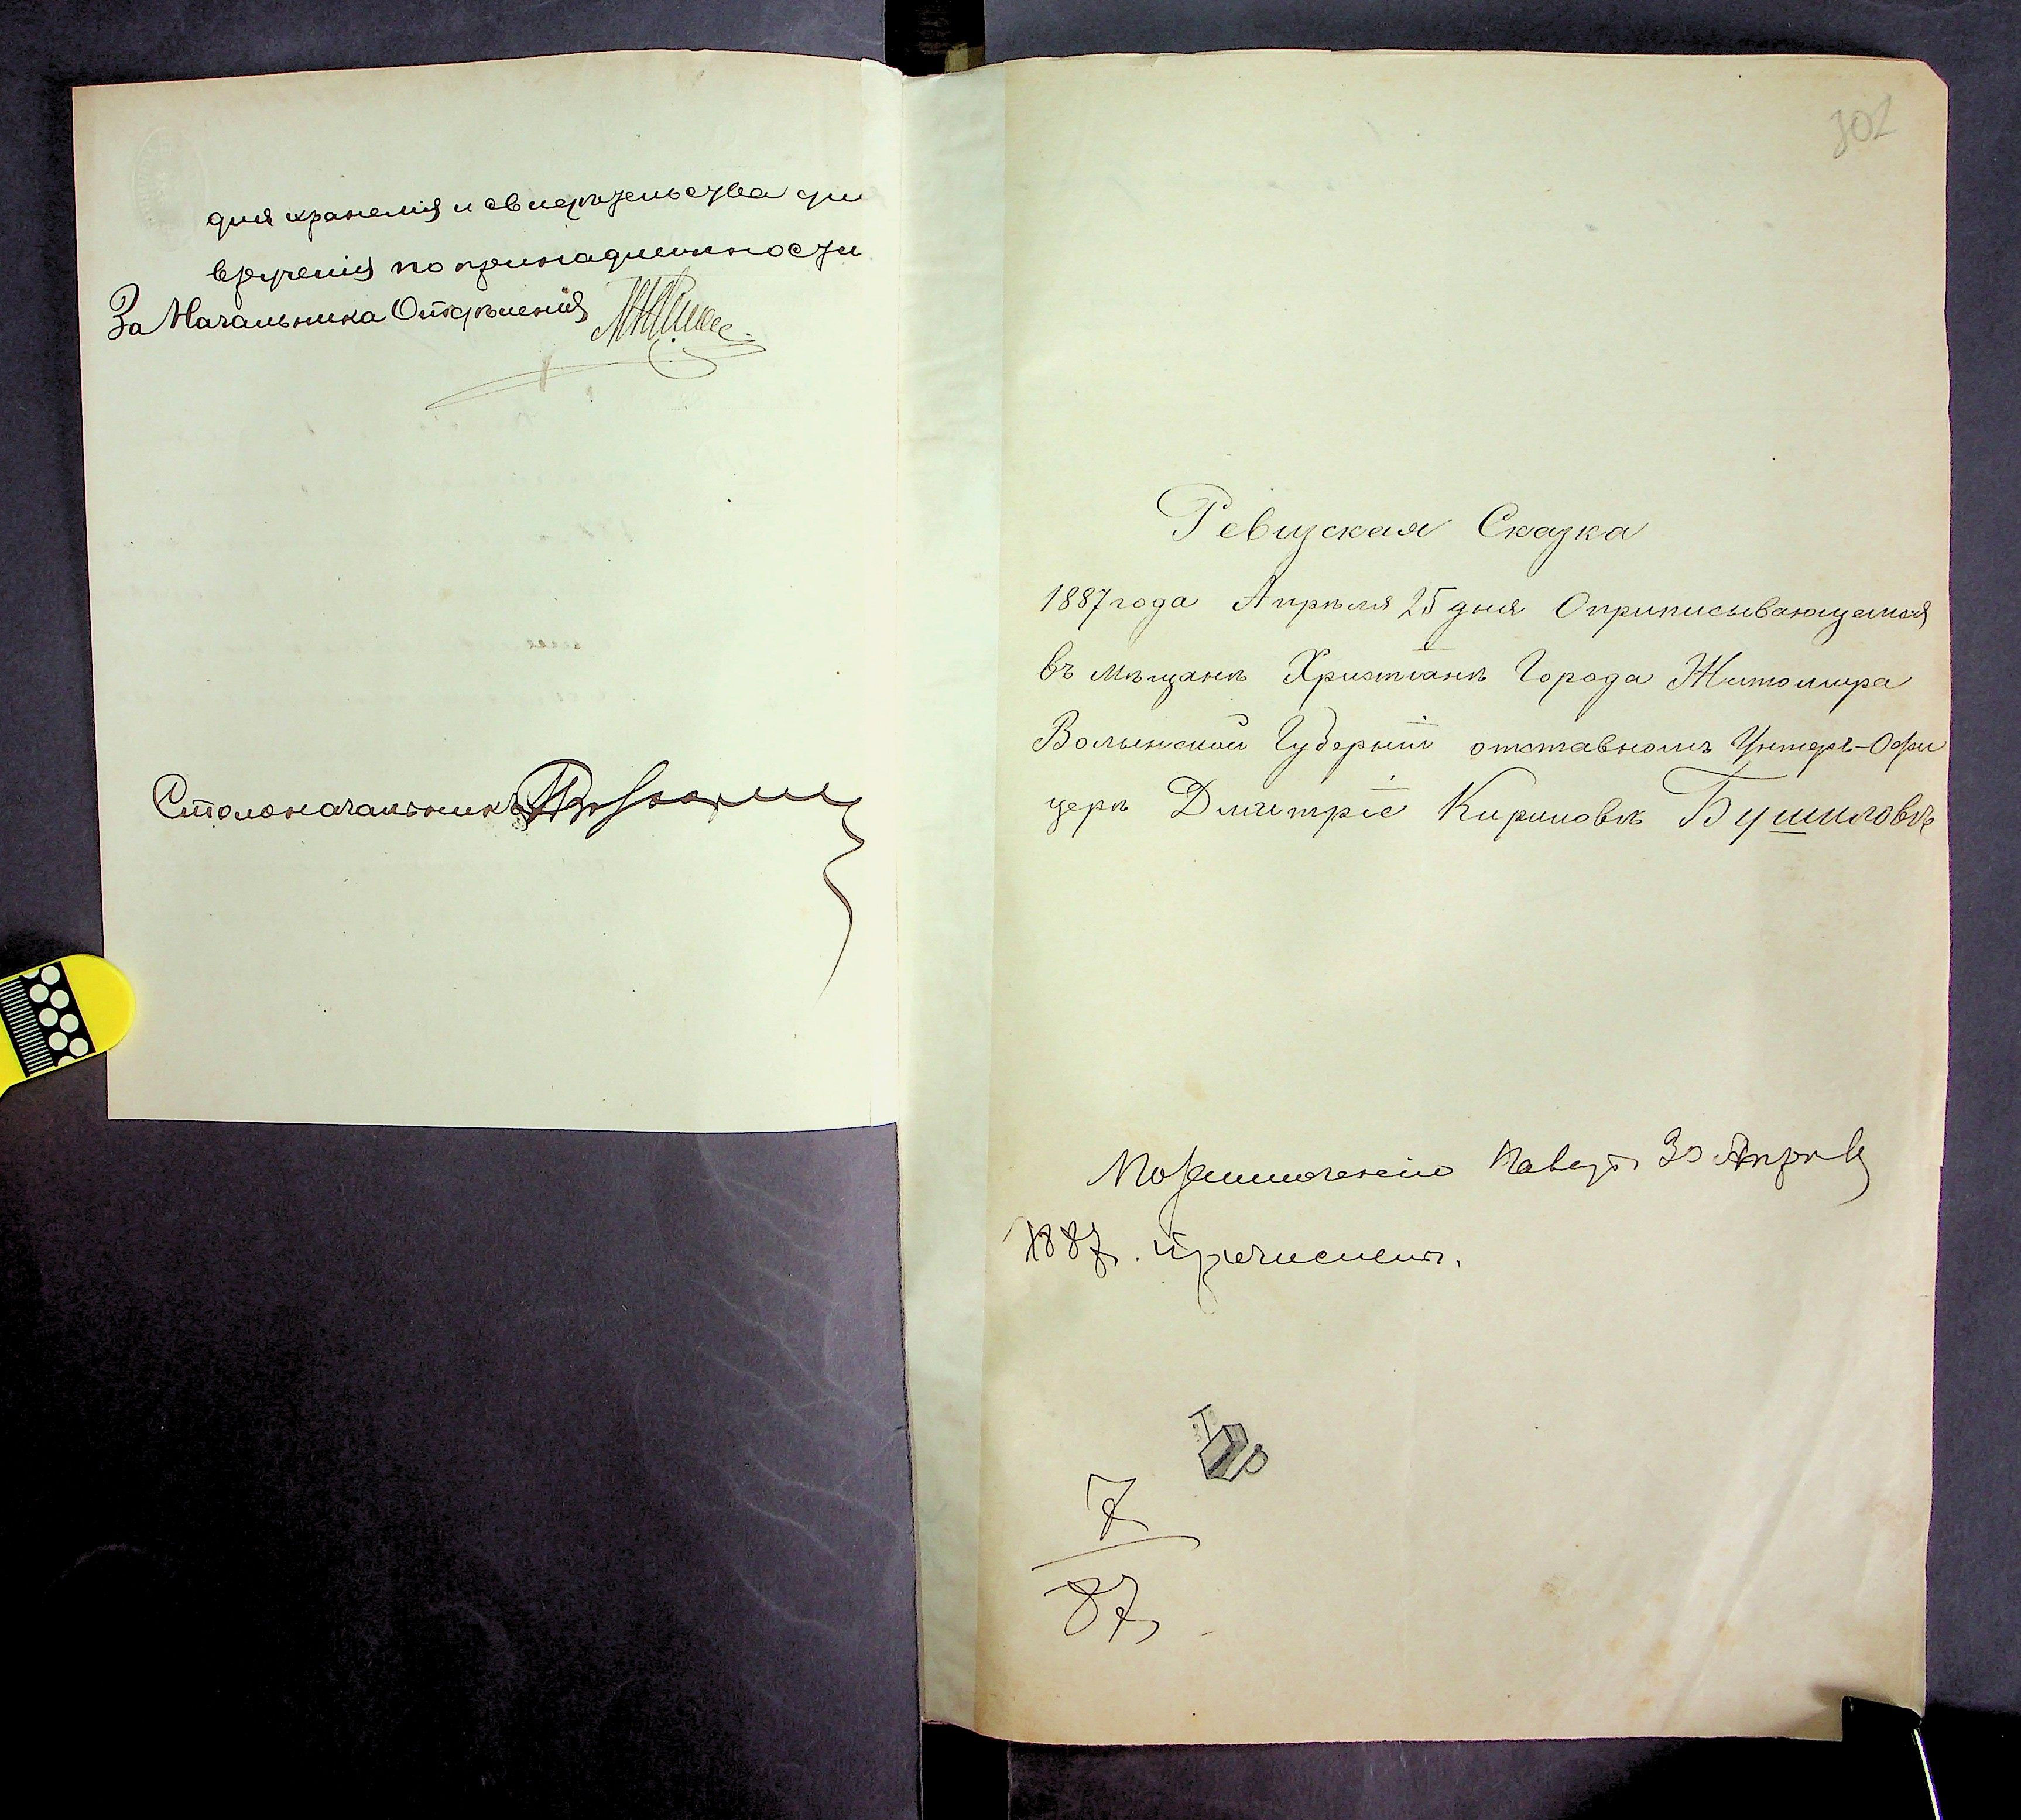 для храненія и свидѣтельства для
врученія по принадлежности
За Начальника Отдѣленія
Столоначальникъ
301
Ревизская Сказка
1887 года Апрѣля 25 дня О приписывающемся
въ мѣщанѣ Христіанѣ Города Житомира
Волынской Губерніи отставномъ Унтеръ-Офи
церѣ Дмитріе Кириловѣ Бушиловѣ
По Апрѣля
1887 г.
7
87